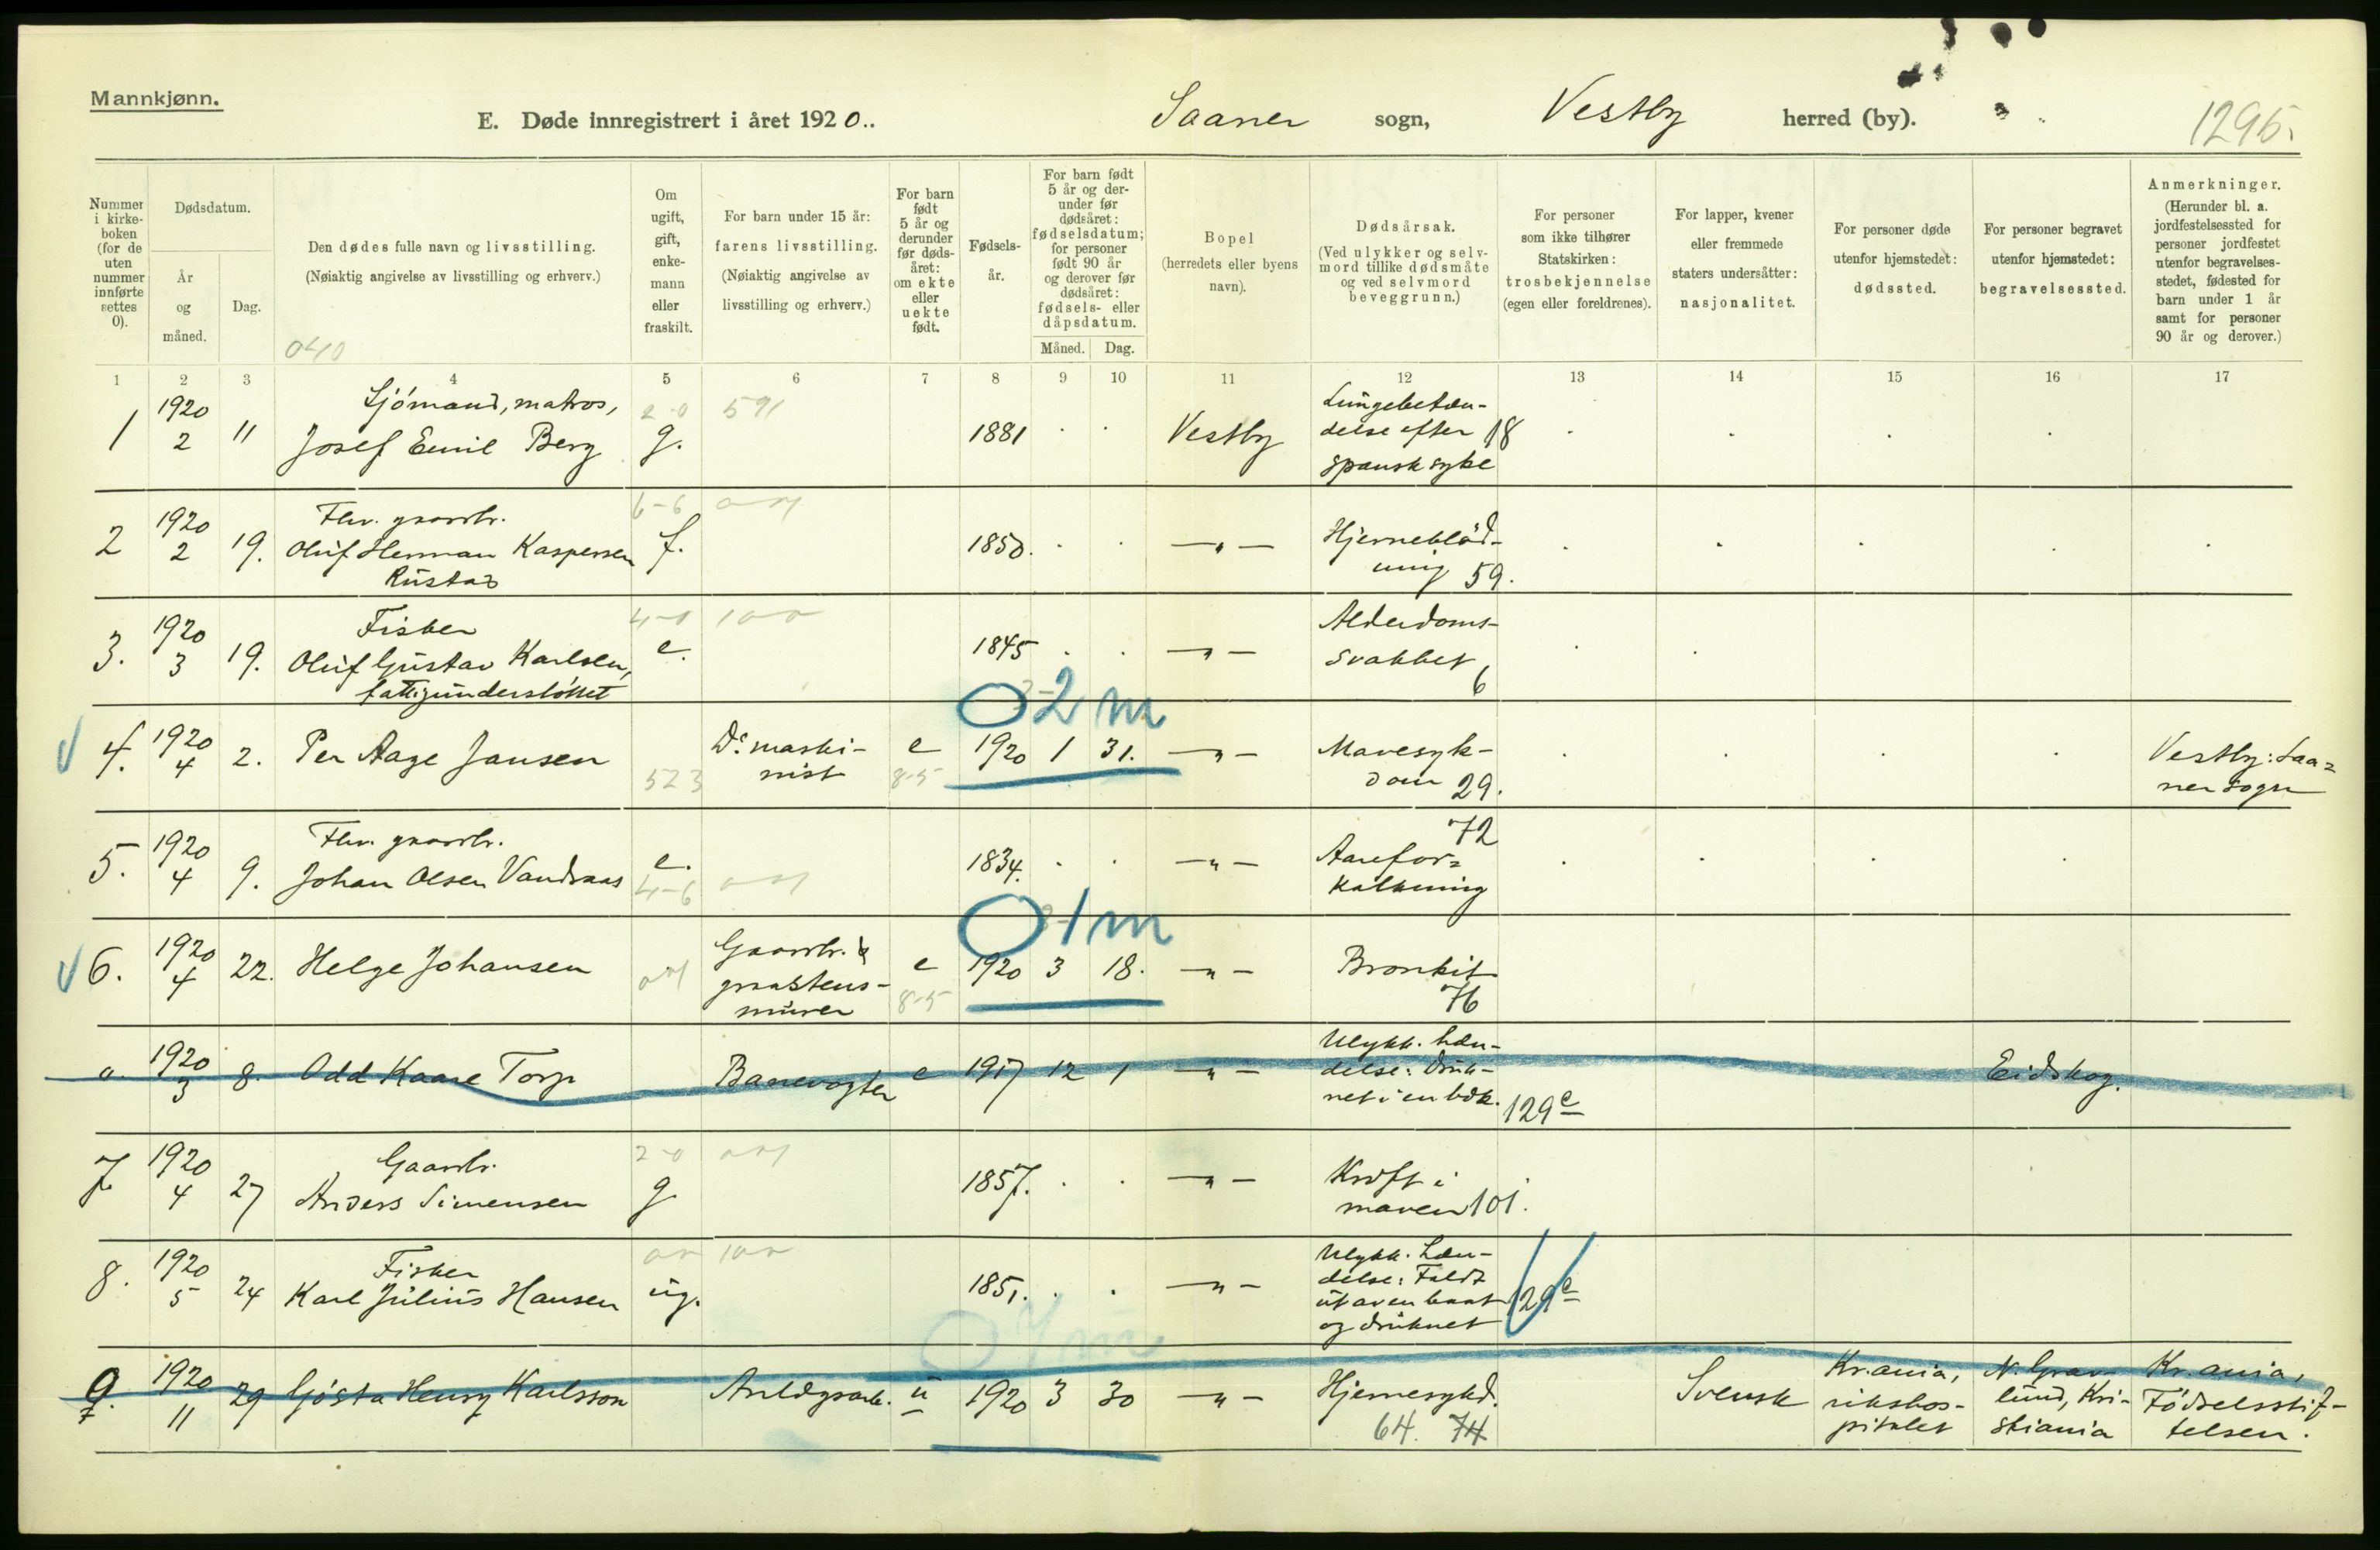 Mannkjønn.
E. Døde innregistrert i året 1920..
Saaner sogn, Vestby herred (by).
1295.
Nummer i kirke-boken (for de uten nummer innførte settes 0).
Dødsdatum.
År og måned.
Dag.
Den dødes fulle navn og livsstilling.
(Nøiaktig angivelse av livsstilling og erhverv.)
040
Om ugift, gift, enke-mann eller fraskilt.
For barn under 15 år: farens livsstilling.
(Nøiaktig angivelse av livsstilling og erhverv.)
For barn født 5 år og derunder før døds-året: om ekte eller uekte født.
Fødsels-år.
For barn født 5 år og der-under før dødsåret: fødselsdatum; for personer født 90 år og derover før dødsåret: fødsels- eller dåpsdatum.
Måned. Dag.
Bopel
(herredets eller byens navn).
Dødsårsak.
(Ved ulykker og selv-mord tillike dødsmåte og ved selvmord beveggrunn.)
For personer som ikke tilhører Statskirken: trosbekjennelse (egen eller foreldrenes).
For lapper, kvener eller fremmede staters undersåtter: nasjonalitet.
For personer døde utenfor hjemstedet: dødssted.
For personer begravet utenfor hjemstedet: begravelsessted.
Anmerkninger.
(Herunder bl. a. jordfestelsessted for personer jordfestet utenfor begravelses-stedet, fødested for barn under 1 år samt for personer 90 år og derover.)
1 2 3 4 5 6 7 8 9 10 11 12 13 14 15 16 17
1 1920 2 11 Sjómand, matros, Josef Emil Berg 2-0 g. 591 1881 Vestby Lungebetæn-delse efter spansk syke 18
2 1920 2 19. Fhv. gaardbr. Oluf Herman Kaspersen Rustad 6-6 f. 1850. —"— Hjerneblød-ning 59.
3. 1920 3 19. Fisker Oluf Gustav Karlsen, fattigunderstøttet 4-0 e. 100 1845 —"— Alderdoms-svakhet 6
0-2 m
4. 1920 4 2. Per Aage Jansen 523 D.s maski-nist e 8-5 1920 1 31. —"— Mavesyk-dom 29. Vestby: Saa=ner sogn
5. 1920 4 9. Fhv. gaardbr. Johan Olsen Vandraas e. 4-6 1834. —"— 72 Aarefor=kalkning
0-1 m
6. 1920 4 22. Helge Johansen Gaardbr. & graastens-murer e 8-5 1920 3 18. —"— Bronkit 76
0. 1920 3 8. Odd Kaare Torp Banevogter e 1917 12 1 —"— Ulykk. hæn-delse: Druk-net i en bæk. 129e Eidskog.
7 1920 4 27 Gaardbr. Anders Simensen 2-0 g 1857. —"— Kræft i maven 101.
8. 1920 5 24 Fisker Karl Julius Hansen ug. 100 1851. —"— Ulykk. hæn-delse: Faldt ut av en baat og druknet 129e
0 7 m
9. 1920 11 29 Gösta Henry Karlsson Anlægsarb. u 1920 3 30 —"— Hjernesykd. 64. 74 Svensk Kr.ania, rikshos-pitalet N. Grav-lund, Kri-stiania Kr.ania, Fødselsstif-telsen.